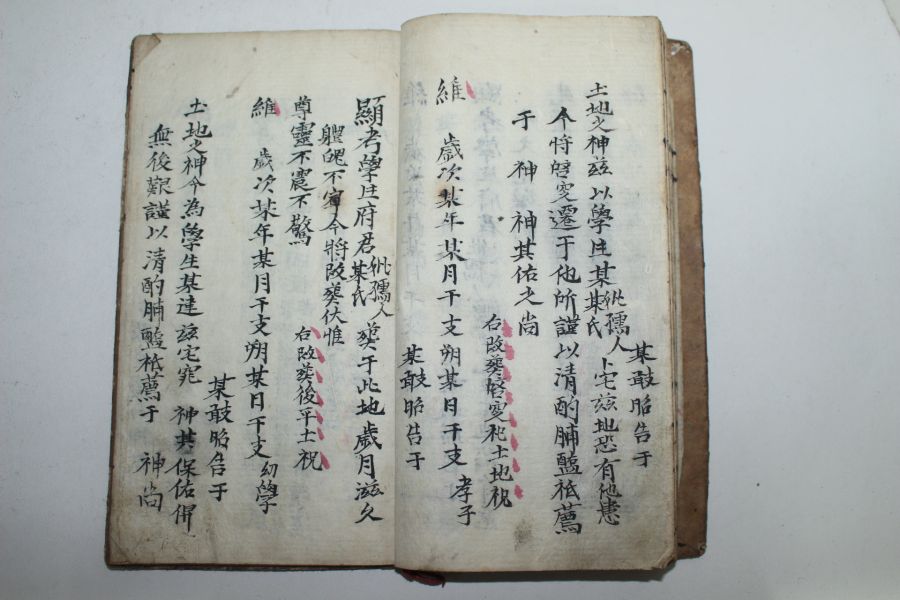 某敢昭告于
土地之神玆以學生某 妣孺人某氏 卜宅玆地恐有他患
今將啓窆遷于他所謹以清酌脯醢祗薦
于 神 神其佑之尚
右改葬啓窆祀土地祝
維 歲次某年某月干支朔某日干支 孝子
某敢昭告于
顯考學生府君 妣孺人某氏 葬于此地歲月滋久
體魄不寧今將改葬伏惟
尊靈不震不驚
右改葬後平土祝
維 歲次某年某月干支朔某日干支 幼學
某敢昭告于
土地之神今為學生某建玆宅窀 神其保佑俾
無後艱謹以清酌脯醢祗薦于 神尚